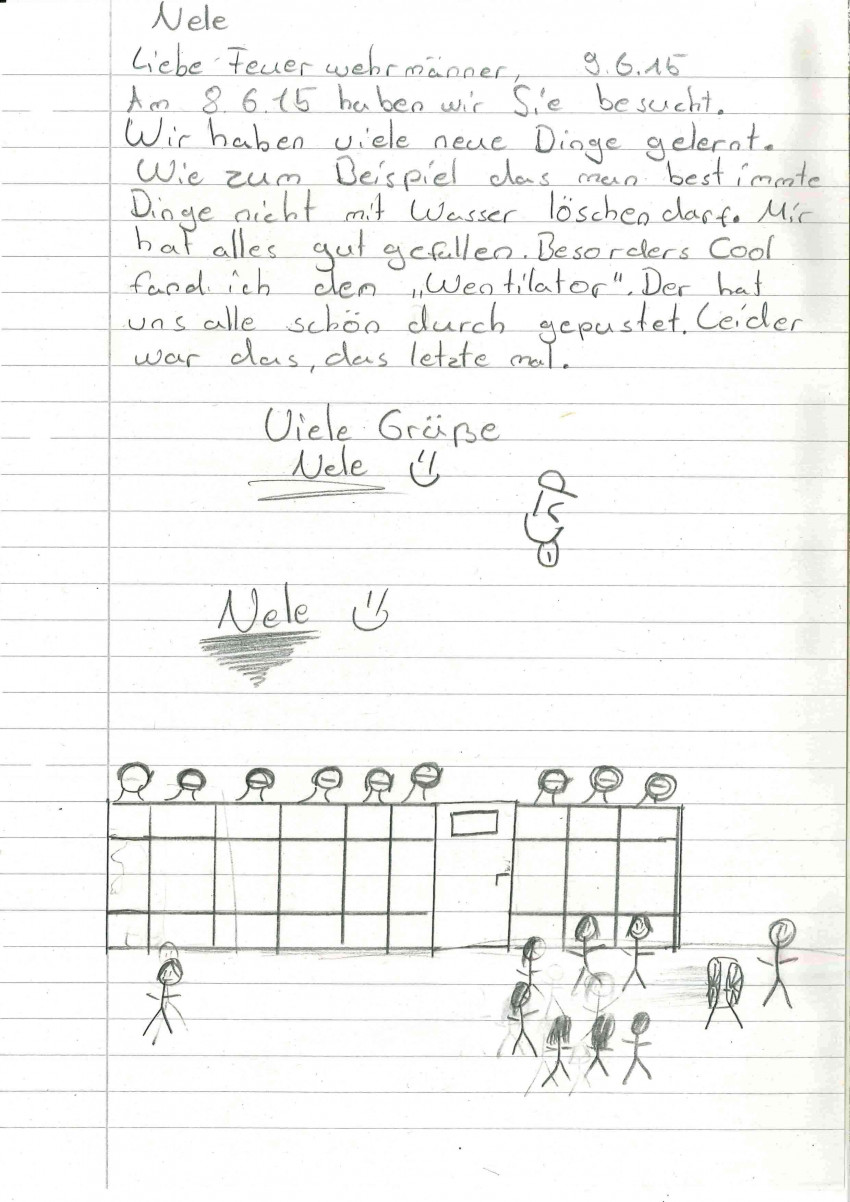 Nele
Liebe Feuerwehrmänner, 9.6.15
Am 8.6.15 haben wir Sie besucht.
Wir haben viele neue Dinge gelernt.
Wie zum Beispiel das man bestimmte
Dinge nicht mit Wasser löschen darf. Mir
hat alles gut gefallen. Besonders Cool
fand ich den „Wentilator“. Der hat
uns alle schön durch gepustet. Leider
war das, das letzte mal.
Viele Grüße
Nele
Nele